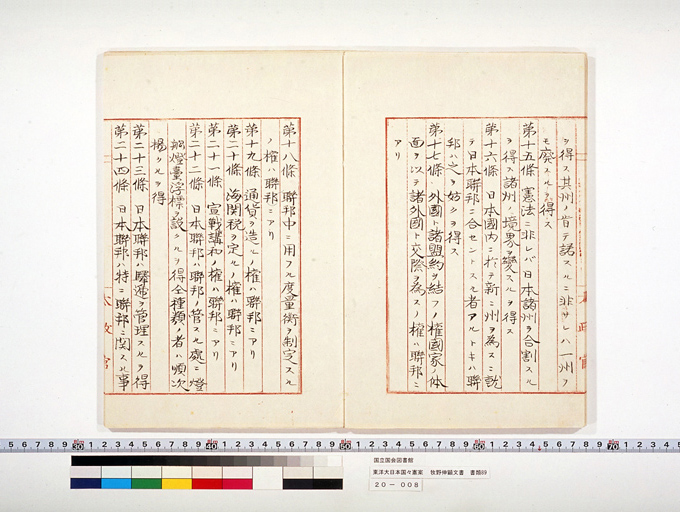 ヲ得ス其州ノ肯テ諾スルニ非サレハ一州ヲ
モ廃スルヲ得ス
第十五條 憲法ニ非レバ日本諸州ヲ合割スル
ヲ得ス諸州ノ境界ヲ變スルヲ得ス
第十六條 日本國内ニ於テ新ニ州ヲ為スニ就
テ日本聯邦ニ合セントスル者アルトキハ聯
邦ハ之ヲ妨クヲ得ス
第十七條 外國ト諸盟約ヲ結フノ權國家ノ体
面ヲ以テ諸外國ト交際ヲ為スノ權ハ聯邦ニ
アリ
第十八條 聯邦中ニ用フル度量衡ヲ制定スル
ノ權ハ聯邦ニアリ
第十九條 通貨ヲ造ルノ權ハ聯邦ニアリ
第二十條 海関税ヲ定ルノ權ハ聯邦ニアリ
第二十一條 宣戦講和ノ權ハ聯邦ニアリ
第二十二條 日本聯邦ハ聯邦ノ管スル處ニ燈
船燈臺浮標ヲ設クルヲ得全種類ノ者ハ順次
揚クルヲ得
第二十三條 日本聯邦ハ驛逓ヲ管理スルヲ得
第二十四條 日本聯邦ハ特ニ聯邦ニ関スル事
太政官
国立国会図書館
東洋大日本国々憲案 牧野伸顕文書 書類69
20-008